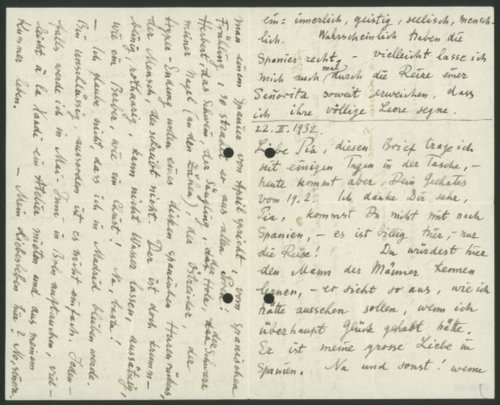 ein= innerlich, geistig, seelisch, mensch-
lich. Wahrscheinlich haben die
Spanier recht, - vielleicht lasse ich
mich auch mal durch die Reize einer
Señorita soweit erweichen, dass
ich ihre völlige Leere segne.
22.II.1932.
Liebe Pia, diesen Brief trage ich
seit einigen Tagen in der Tasche, -
heute kommt aber Dein
vom 19.2 Ich danke Dir sehr,
Pia, kommst Du nicht mit nach
Spanien, - es ist billig hier, - nur
die Reise! Du würdest hier
den Mann der Männer kennen
lernen, - er sieht so aus, wie ich
hätte aussehen sollen, wenn ich
überhaupt Glück gehabt hätte.
Er ist meine grosse Liebe in
Spanien. Na und sonst! wenn
man einem Spanier von spricht vom spanischen
Frühling, so strahlt er aus allen
Herbst das
meiner Nägel (an den Zähen), der der
unter eines dicken spanischen
der Mensch, der schreibt nicht. Der ist doch krumm-
beinig, rothaarig, kann nicht Wasser lassen, aussätzig,
wie ein wie ein Idiot! Na basta!
- Ich glaube nicht, dass ich in Madrid bleiben werde
Bin unschlüssig, ausserdem ist es nicht einfach. Jeden-
falls werde ich in Mai-Juni in Bln auftauchen, viel-
leicht à la Karde ein Atelier mieten und aus meinem
Kummer leben. - Mein Liebesleben hier? No, señora,